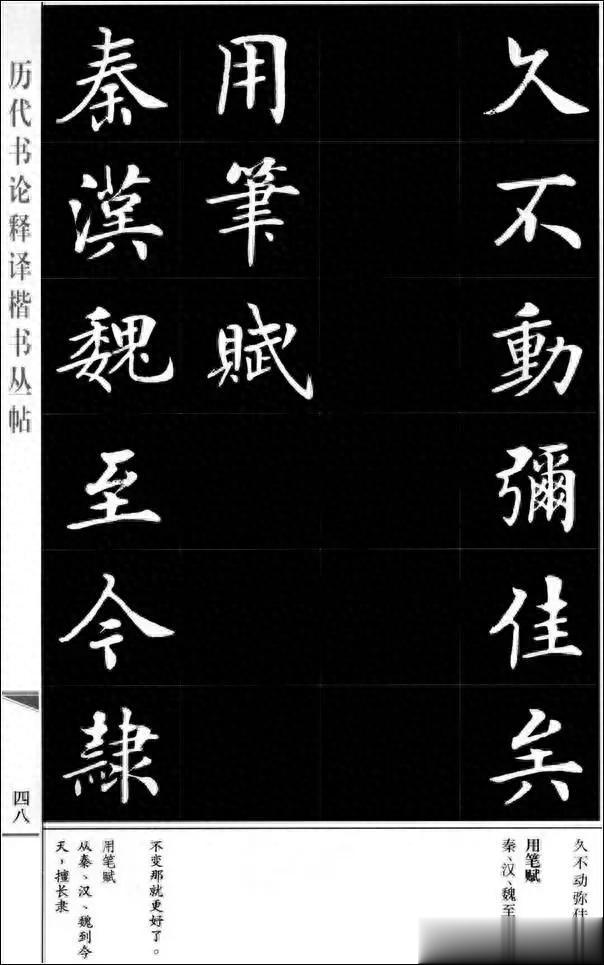 久不動彌佳矣
用筆賦
秦漢魏至今隸
历代书论释译楷书丛帖
四八
久不动弥佳
用笔赋
秦、汉、魏至
不变那就更好了。
用笔赋
从秦、汉、魏到今
天，擅长隶